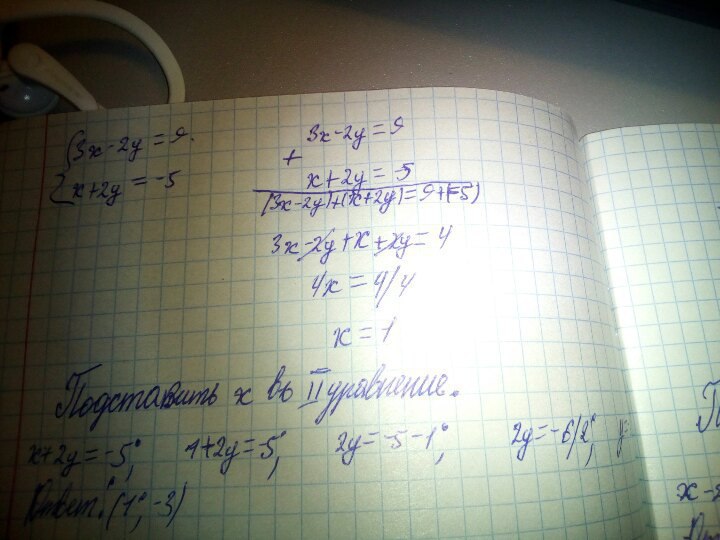 3x-2y=9.
x+2y=-5
3x-2y=9
+
x+2y=-5
(3x-2y)+(x+2y)=9+(-5)
3x-2y+x+2y=4
4x=4/4
x=1
Подставить x во II уравнение.
x+2y=-5; 1+2y=-5; 2y=-5-1; 2y=-6/2; y=
Ответ: (1; -3)